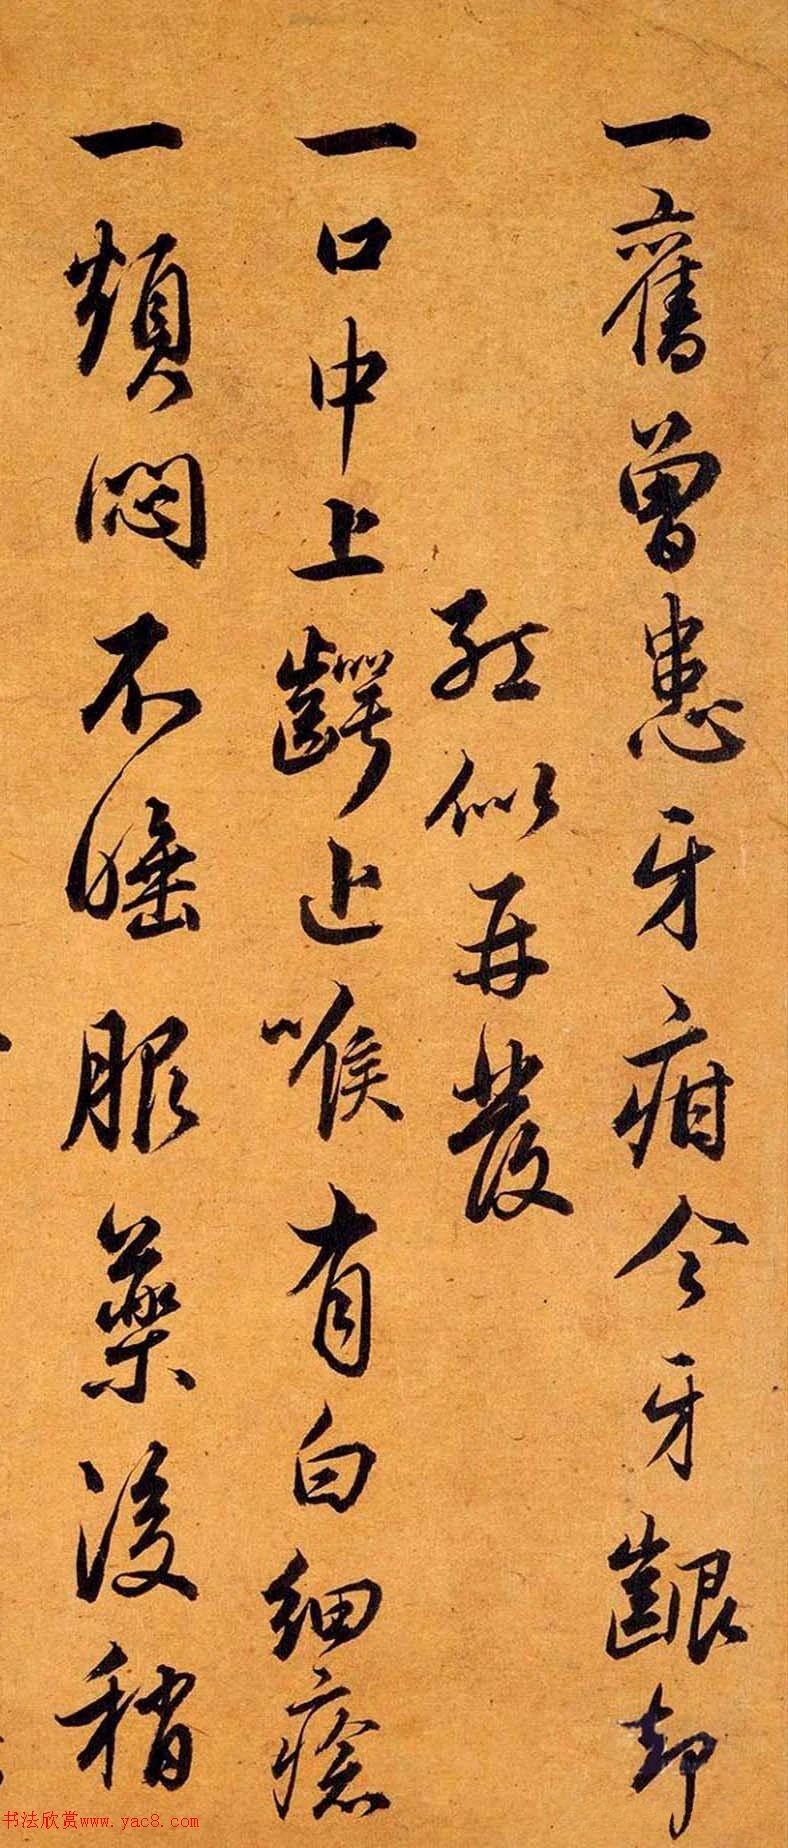 一舊曾患牙疳今牙齦却
紅似再發
一口中上齶近喉有白細瘡
一煩悶不睡服藥後稍
书法欣赏www.yac8.com